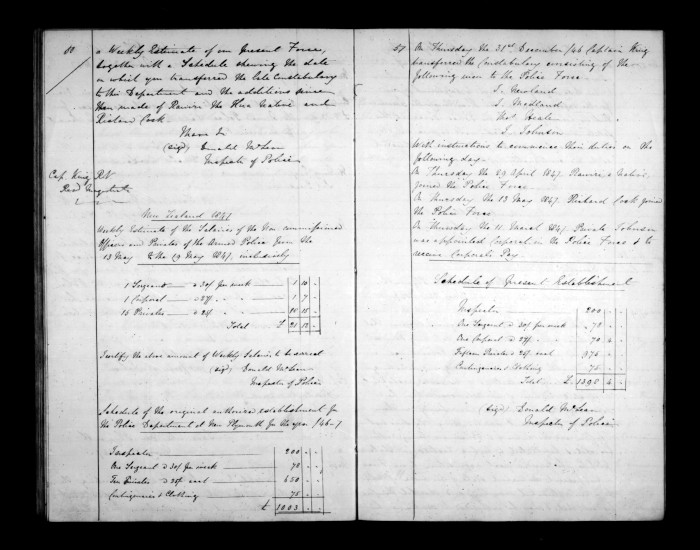 60
a Weekly Estimate of our Present Force,
together with a Schedule shewing the date
on which you transferred the late Constabulary
to this Department and the additions since
then made of Rawiri the Native and
Richard Cook.
I have &c
(Sigd) Donald McLean
Inspector of Police
Cap King R.N
Resd Magistrate
New Zealand 1847
Weekly Estimate of the Salaries of the Non commissioned
Officers and Privates of the Armed Police from the
13 May to the 19 May 1847, inclusively
1 Sergeant @ 30/ per week 1 10 -
1 Corporal @ 27/ 1 7 -
15 Privates @ 25/ 18 15 -
Total £ 21 12 -
I certify the above amount of Weekly Salaries to be correct
(sigd) Donald McLean
Inspector of Police
Schedule of the original authorized establishment for
the Police Department at New Plymouth for the year /46-7
Inspector 200 - -
One Sergeant @ 30/ per week 78 - -
Ten Privates @ 25/ each 650 - -
Contingencies & Clothing 75 - -
£ 1003 - -
59
On Thursday the 31st December /46 Captain King
transferred the Constabulary consisting of the
following men to the Police Force
J. Newland
S. Medland
Mos Heale
J. Johnson
With instructions to commence their duties on the
following day.
On Thursday the 29 April 1847. Rawiri a Native,
joined the Police Force
On Thursday the 13 May 1847. Richard Cook joined
the Police Force
On Thursday the 11 March 1847 Private Johnson
was appointed Corporal in the Police Force & to
receive Corporals Pay.
Schedule of Present Establishment
Inspector 200 - -
One Sergeant @ 30/ per week 78 - -
One Corporal @ 27/ 70 4 -
Fifteen Privates @ 25/ each 975 - -
Contingencies & Clothing 75 - -
Total £ 1398 4 -
(Sigd) Donald McLean
Inspector of Police